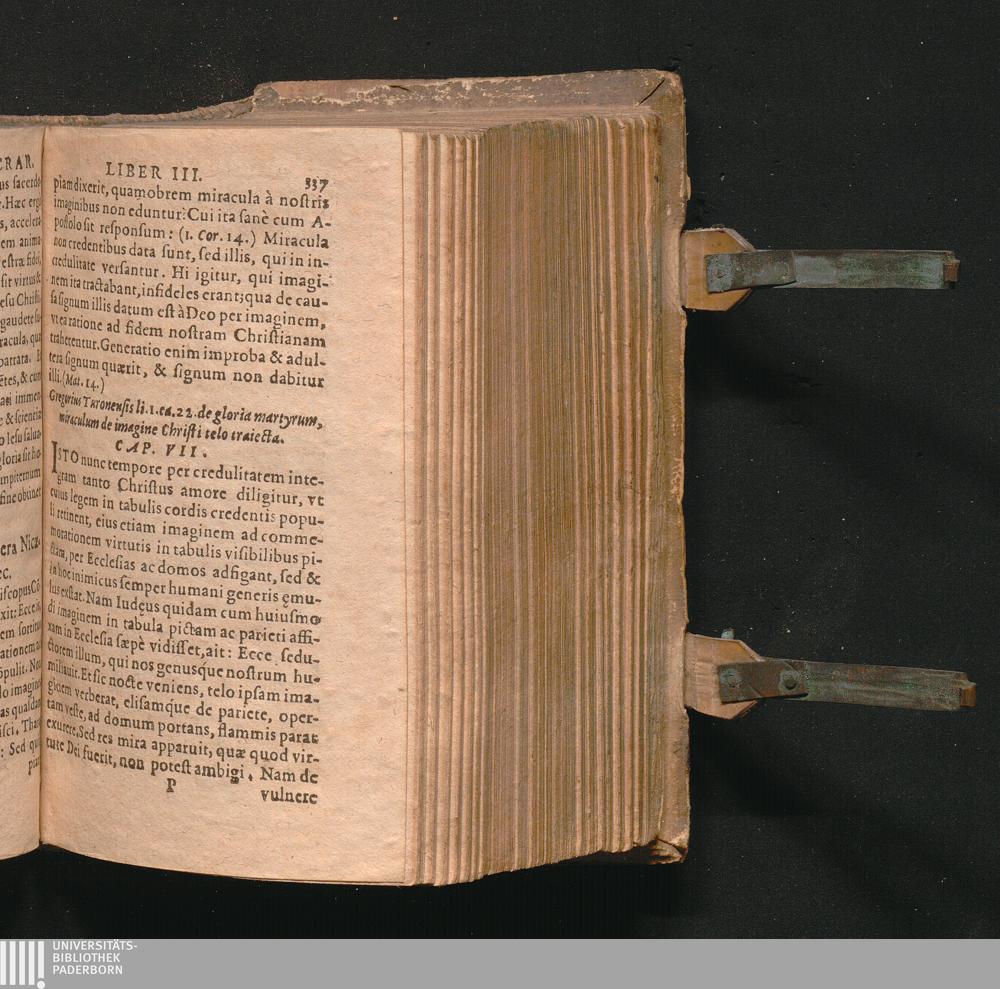 CRAR.
us sacerdo
. Hæc erg
s, accelera
em anima
estræ fidei,
sit virtus &
esu Christi
gaudete
racula, qua
parrata.
ētes, & cum
immen
e & scientia
o Iesu salua
gloria sit ho
mpiternum
fine obtinet
era Nicæ
ec.
iscopus Cō
xit: Ecce
em sortitus
rationem
ōpulit. Non
lo imagine
as quasdam
isci. Thar
: Sed qui
piam
LIBER III. 337
piam dixerit, quamobrem miracula à nostris
imaginibus non eduntur: Cui ita sanè cum A-
postolo sit responsum: (1. Cor. 14.) Miracula
non credentibus data sunt, sed illis, qui in in-
credulitate versantur. Hi igitur, qui imagi-
nem ita tractabant, infideles erant; qua de cau-
sa signum illis datum est à Deo per imaginem,
vt ea ratione ad fidem nostram Christianam
traherentur. Generatio enim improba & adul-
tera signum quærit, & signum non dabitur
illi. (Mat. 14.)
Gregorius Turonensis li. 1. ca. 22. de gloria martyrum,
miraculum de imagine Christi telo traiecta.
CAP. VII.
ISTO nunc tempore per credulitatem inte-
gram tanto Christus amore diligitur, vt
cuius legem in tabulis cordis credentis popu-
li retinent, eius etiam imaginem ad comme-
morationem virtutis in tabulis visibilibus pi-
ctam, per Ecclesias ac domos adfigant, sed &
in hoc inimicus semper humani generis ęmu-
lus exstat. Nam Iudęus quidam cum huiusmo
di imaginem in tabula pictam ac parieti affi-
xam in Ecclesia sæpè vidisset, ait: Ecce sedu-
ctorem illum, qui nos genusque nostrum hu-
miliauit. Et sic nocte veniens, telo ipsam ima-
ginem verberat, elisamque de pariete, oper-
tam veste, ad domum portans, flammis parat
exurere. Sed res mira apparuit, quæ quod vir-
tute Dei fuerit, non potest ambigi. Nam de
P vulnere
UNIVERSITÄTS-
BIBLIOTHEK
PADERBORN